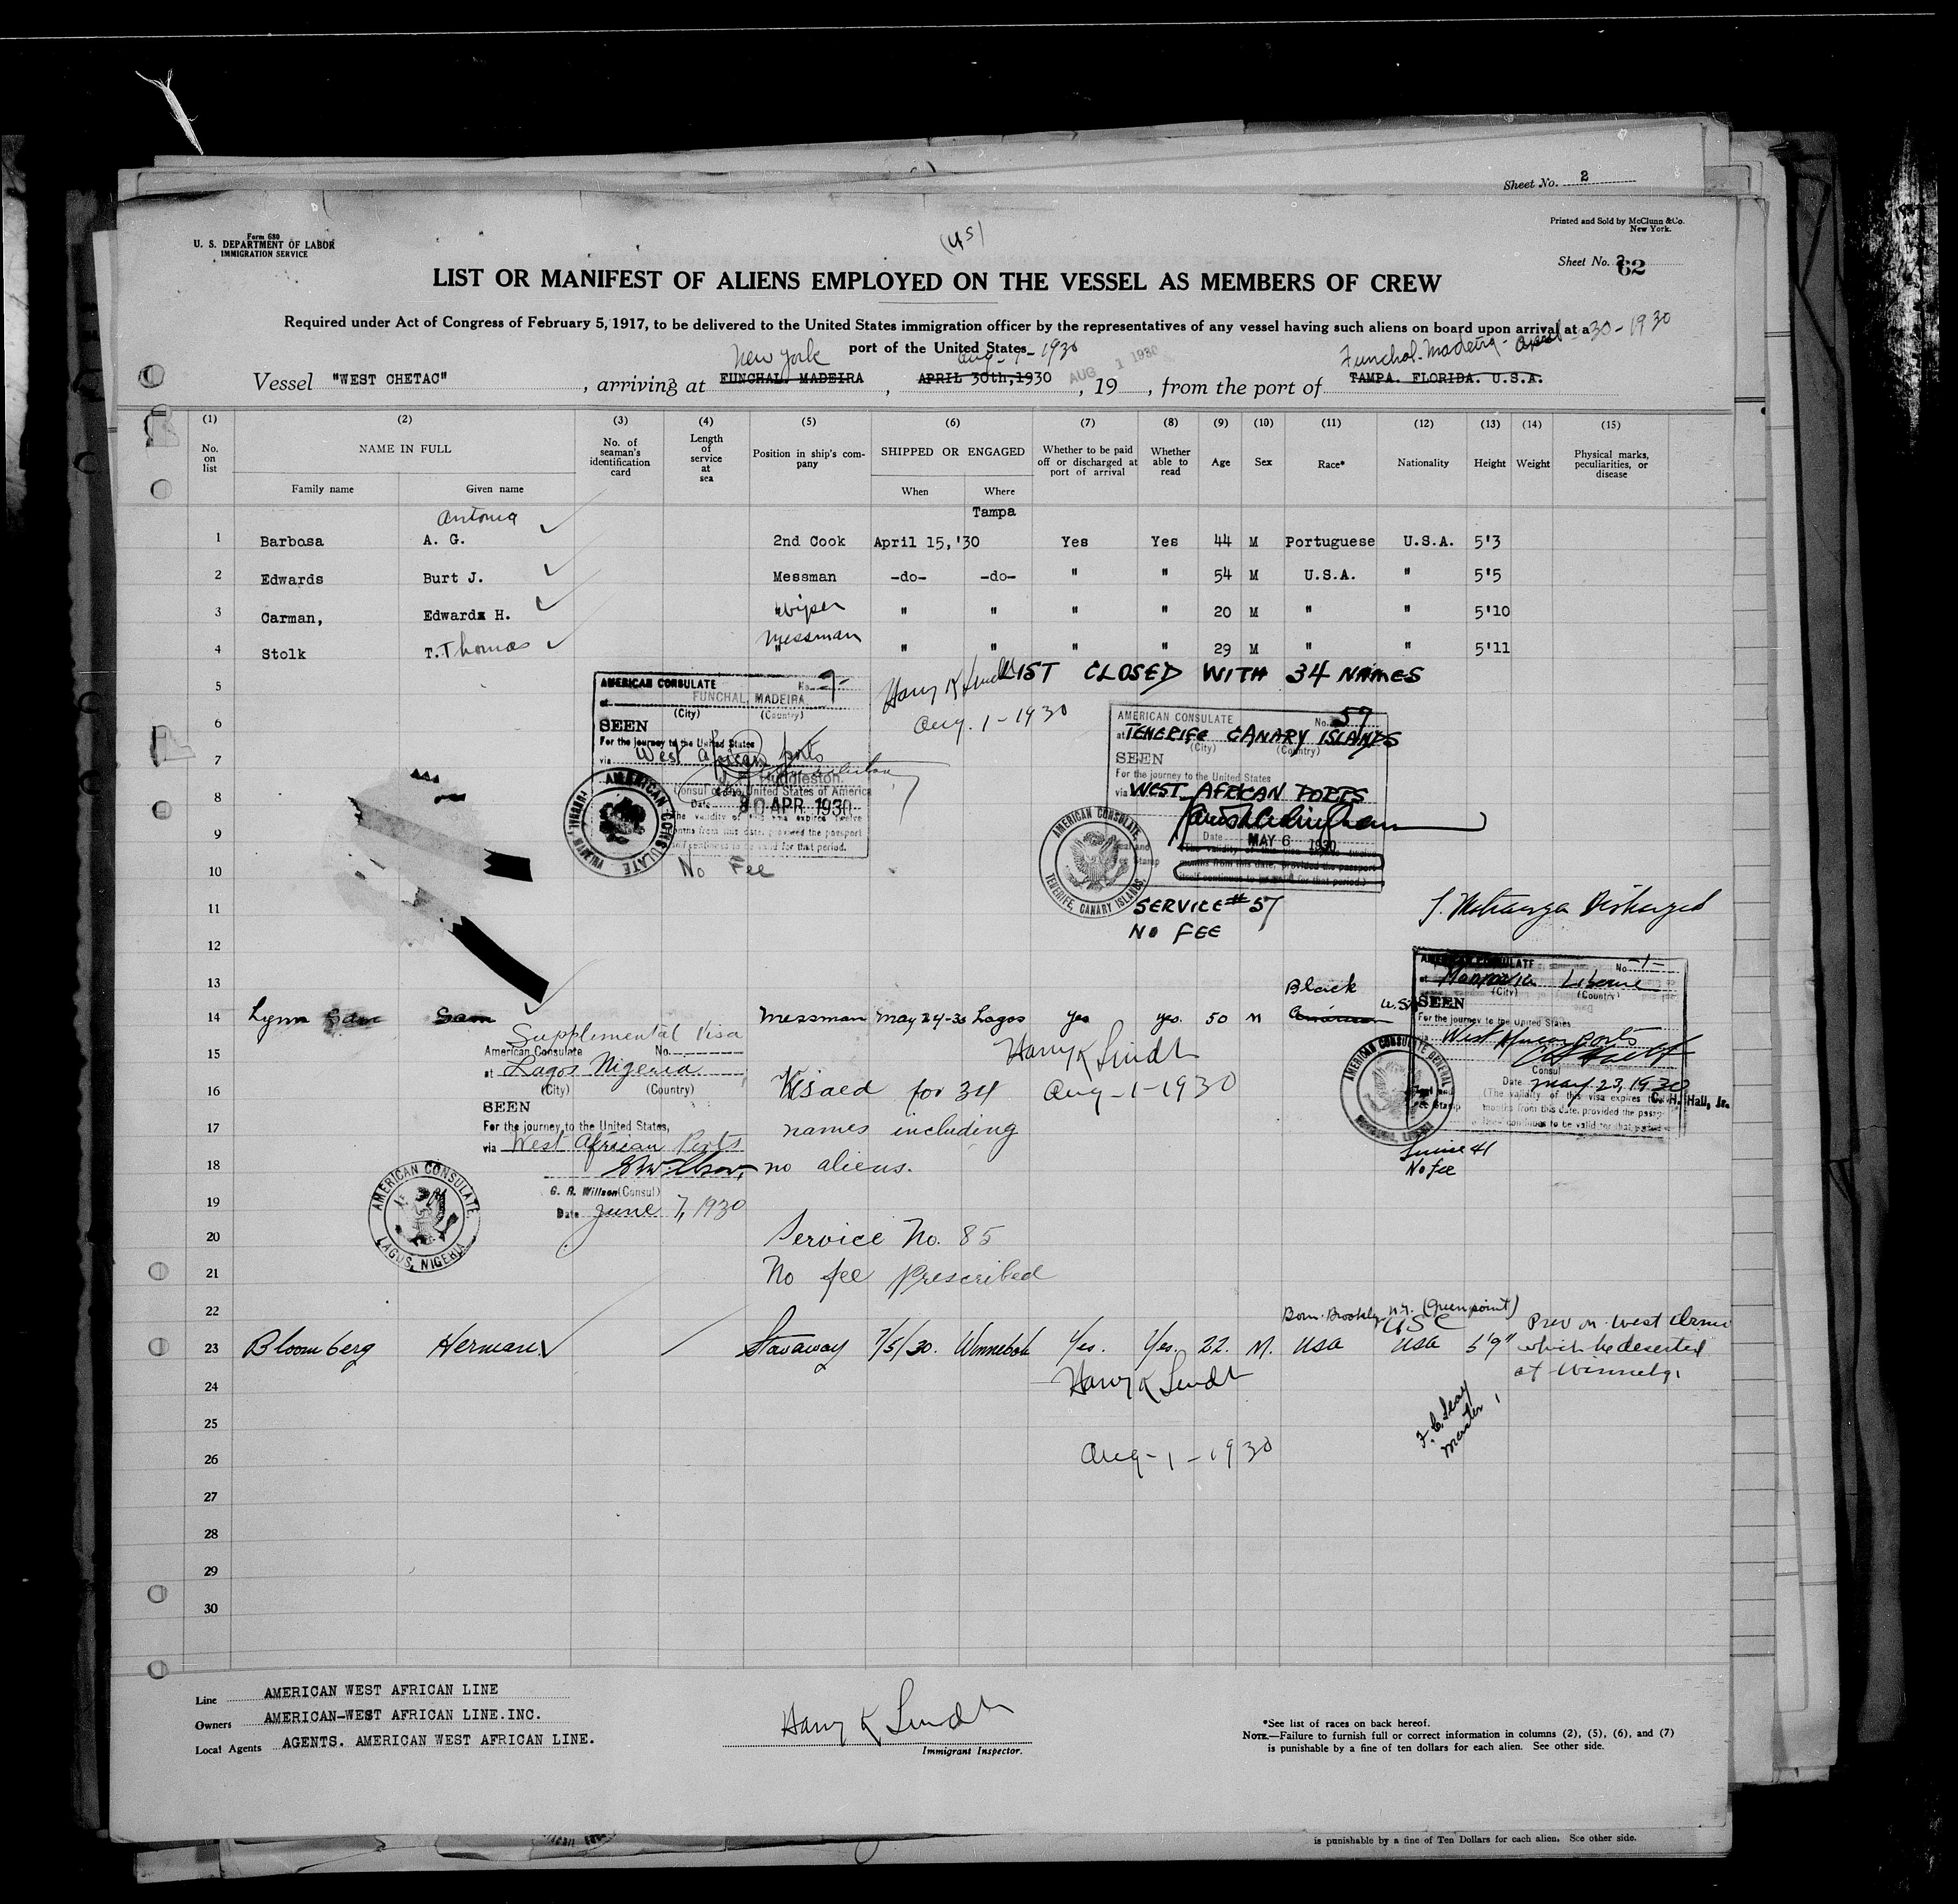 Sheet No. 2
Form 680
U. S. DEPARTMENT OF LABOR
IMMIGRATION SERVICE
(US)
Printed and Sold by McClunn & Co.
New York.
Sheet No. 62
LIST OR MANIFEST OF ALIENS EMPLOYED ON THE VESSEL AS MEMBERS OF CREW
Required under Act of Congress of February 5, 1917, to be delivered to the United States immigration officer by the representatives of any vessel having such aliens on board upon arrival at a
port of the United States
New York Aug-1-1930 AUG 1 1930 Funchal-Madeira- April-30-1930
Vessel "WEST CHETAC", arriving at FUNCHAL. MADEIRA, APRIL 30th,1930, 19, from the port of TAMPA. FLORIDA. U.S.A.
(1) (2) (3) (4) (5) (6) (7) (8) (9) (10) (11) (12) (13) (14) (15)
No. on list
NAME IN FULL
Family name
Given name
No. of seaman's identification card
Length of service at sea
Position in ship's company
SHIPPED OR ENGAGED
When
Where
Whether to be paid off or discharged at port of arrival
Whether able to read
Age
Sex
Race*
Nationality
Height
Weight
Physical marks, peculiarities, or disease
Antonia Tampa
1 Barbosa A. G. 2nd Cook April 15,'30 Yes Yes 44 M Portuguese U.S.A. 5'3
2 Edwards Burt J. Messman -do- -do- " " 54 M U.S.A. " 5'5
3 Carman, Edwardx H. Wiper " " " " 20 M " " 5'10
4 Stolk T. Thomas Messman " " " " " 29 M " " 5'11
5
LIST CLOSED WITH 34 NAMES
Harry K Lindt
Aug. 1-1930
AMERICAN CONSULATE No. 9-
at FUNCHAL, MADEIRA
(City) (Country)
SEEN
For the journey to the United States
via West African ports
Huddleston.
Consul of the United States of America
Date 30 APR 1930
The validity of this visa expires twelve
months from this date, provided the passport
itself continues to be valid for that period.
AMERICAN CONSULATE
No Fee
AMERICAN CONSULATE No. 57
at TENERIFE CANARY ISLANDS
(City) (Country)
SEEN
For the journey to the United States
via WEST AFRICAN PORTS
Date MAY 6 1930
(The validity of this visa expires twelve
months from this date, provided the passport
itself continues to be valid for that period.)
AMERICAN CONSULATE
TENERIFE, CANARY ISLANDS.
SERVICE # 57
NO FEE
6
7
8
9
10
11
Discharged
12
13
Black
14 Lynn Sam Sam Messman May 24-30 Lagos Yes yes. 50 M U.S.A
AMERICAN CONSULATE No. -1-
at Monrovia Liberia
(City) (Country)
SEEN
For the journey to the United States
via West African ports
Consul
Date May 23, 1930
C. H. Hall, Jr.
(The validity of this visa expires
months from this date, provided the passport
continues to be valid for that period
AMERICAN CONSULATE GENERAL
MONROVIA, LIBERIA
Service 41
No fee
15
Supplemental Visa
American Consulate No.
at Lagos Nigeria
(City) (Country)
SEEN
For the journey to the United States,
via West African Ports
G. R. Willson (Consul)
Date June 7, 1930
AMERICAN CONSULATE
LAGOS, NIGERIA
Harry K Lindt
Aug-1-1930
Visaed for 34
names including
no aliens.
Service No. 85
No fee prescribed
16
17
18
19
20
21
22
Born-Brooklyn N.Y. (Greenpoint)
USC
23 Bloomberg Herman Stowaway 7/5/30. Winnebah Yes. Yes. 22. M. USA USA 5'9"
Prev on West
which he deserted
at
Harry K Lindt
Aug-1-1930
Master
24
25
26
27
28
29
30
Line AMERICAN WEST AFRICAN LINE
Owners AMERICAN-WEST AFRICAN LINE.INC.
Local Agents AGENTS. AMERICAN WEST AFRICAN LINE.
Harry K Lindt
Immigrant Inspector.
*See list of races on back hereof.
NOTE.—Failure to furnish full or correct information in columns (2), (5), (6), and (7)
is punishable by a fine of ten dollars for each alien. See other side.
is punishable by a fine of Ten Dollars for each alien. See other side.